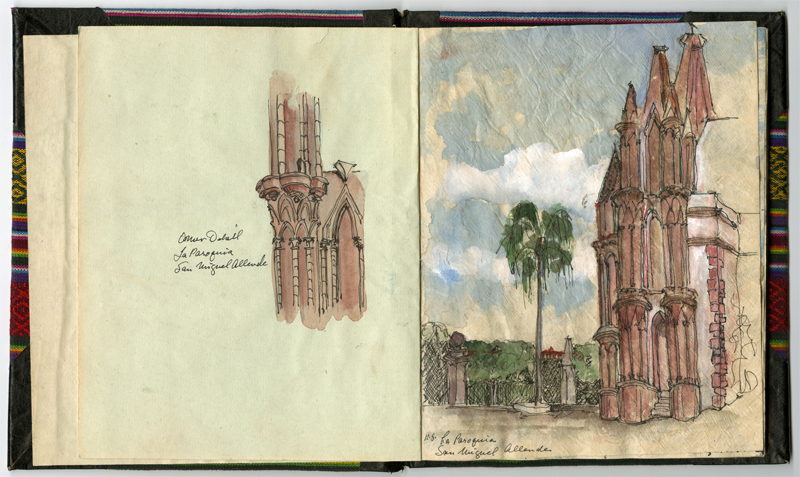 Corner Detail
La Paroquia
San Miguel Allende
La Paroquia
San Miguel Allende